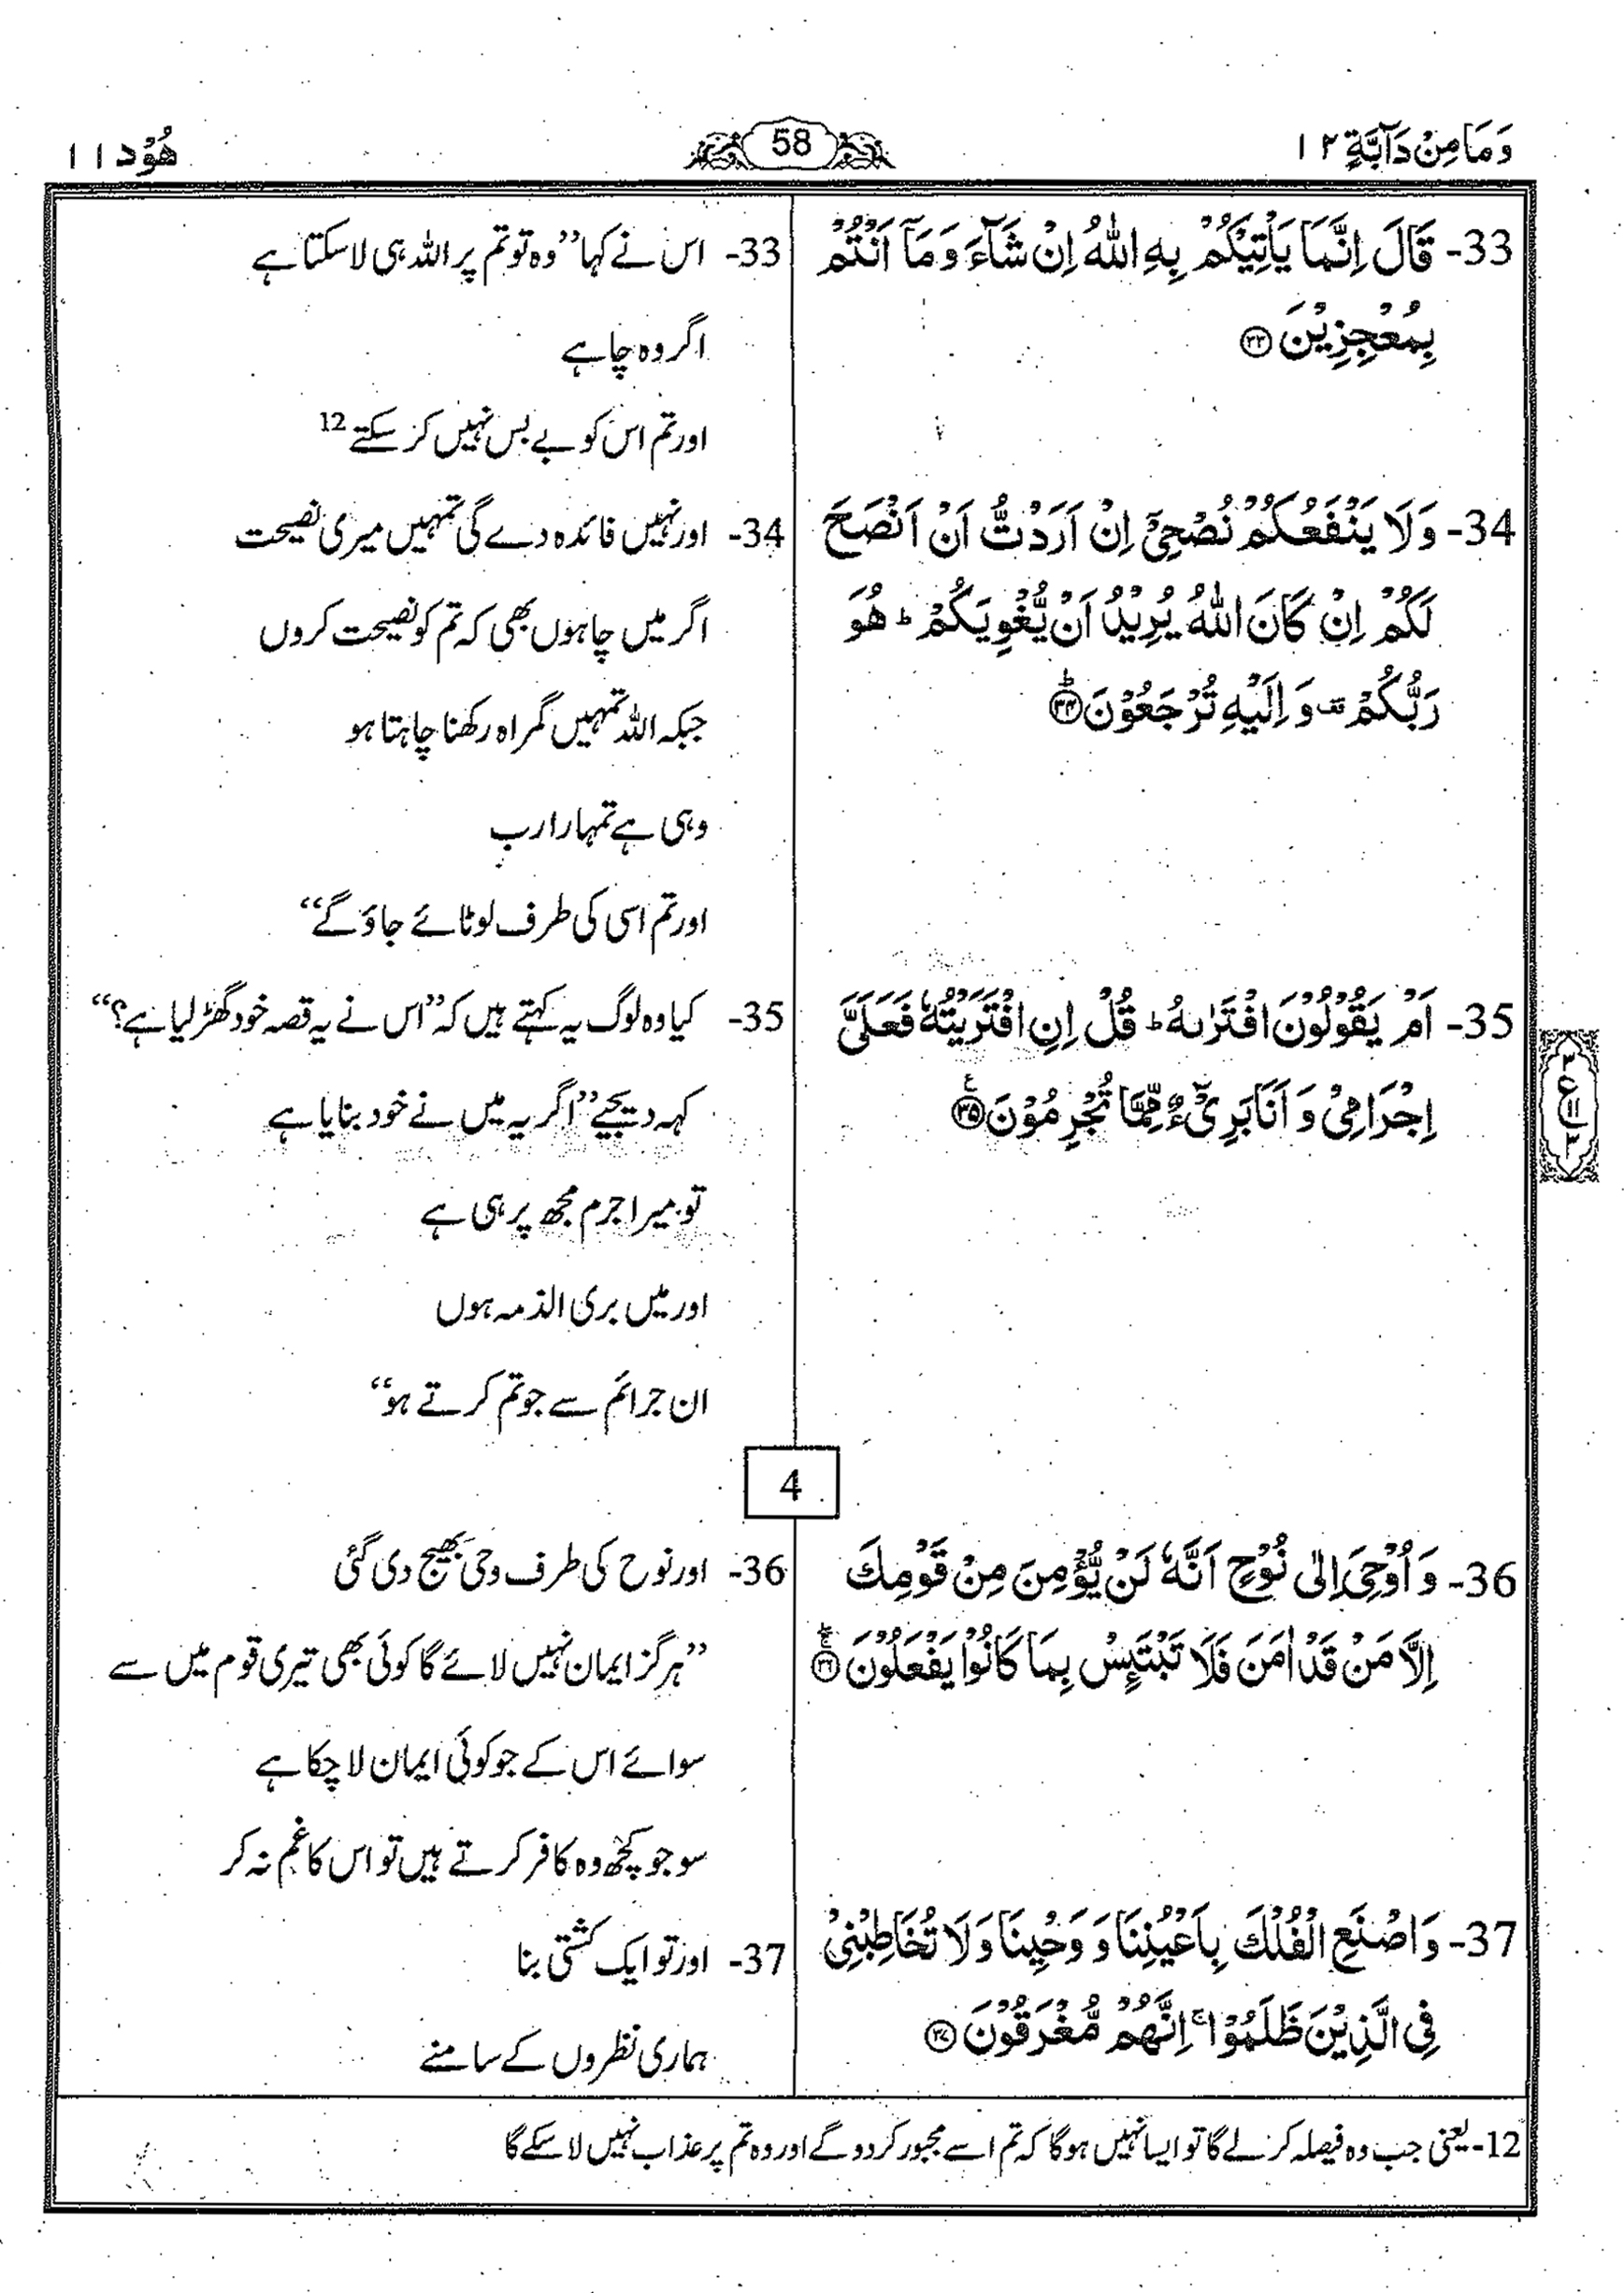 وَمَا مِنْ دَآبَّةٍ ١٢
58
هُوْد ١١
33- قَالَ اِنَّمَا يَاْتِيْكُمْ بِهِ اللّٰهُ اِنْ شَآءَ وَمَآ اَنْتُمْ
بِمُعْجِزِيْنَ ۝۳۳
34- وَلَا يَنْفَعُكُمْ نُصْحِيْٓ اِنْ اَرَدْتُّ اَنْ اَنْصَحَ
لَكُمْ اِنْ كَانَ اللّٰهُ يُرِيْدُ اَنْ يُّغْوِيَكُمْ ؕ هُوَ
رَبُّكُمْ ۫ وَ اِلَيْهِ تُرْجَعُوْنَ ۝۳۴ؕ
35- اَمْ يَقُوْلُوْنَ افْتَرٰىهُ ؕ قُلْ اِنِ افْتَرَيْتُهٗ فَعَلَيَّ
اِجْرَامِيْ وَ اَنَا بَرِيْٓءٌ مِّمَّا تُجْرِمُوْنَ ۝۳۵ۧ
36- وَ اُوْحِيَ اِلٰى نُوْحٍ اَنَّهٗ لَنْ يُّؤْمِنَ مِنْ قَوْمِكَ
اِلَّا مَنْ قَدْ اٰمَنَ فَلَا تَبْتَئِسْ بِمَا كَانُوْا يَفْعَلُوْنَ ۝۳۶
37- وَاصْنَعِ الْفُلْكَ بِاَعْيُنِنَا وَ وَحْيِنَا وَلَا تُخَاطِبْنِيْ
فِي الَّذِيْنَ ظَلَمُوْا ۚ اِنَّهُمْ مُّغْرَقُوْنَ ۝۳۷
33- اس نے کہا ”وہ تو تم پر اللہ ہی لا سکتا ہے
اگر وہ چاہے
اور تم اس کو بے بس نہیں کر سکتے 12
34- اور نہیں فائدہ دے گی تمہیں میری نصیحت
اگر میں چاہوں بھی کہ تم کو نصیحت کروں
جبکہ اللہ تمہیں گمراہ رکھنا چاہتا ہو
وہی ہے تمہارا رب
اور تم اسی کی طرف لوٹائے جاؤ گے“
35- کیا وہ لوگ یہ کہتے ہیں کہ ”اس نے یہ قصہ خود گھڑ لیا ہے؟“
کہہ دیجیے ”اگر یہ میں نے خود بنایا ہے
تو میرا جرم مجھ پر ہی ہے
اور میں بری الذمہ ہوں
ان جرائم سے جو تم کرتے ہو“
4
36- اور نوح کی طرف وحی بھیج دی گئی
”ہرگز ایمان نہیں لائے گا کوئی بھی تیری قوم میں سے
سوائے اس کے جو کوئی ایمان لا چکا ہے
سو جو کچھ وہ کافر کرتے ہیں تو اس کا غم نہ کر
37- اور تو ایک کشتی بنا
ہماری نظروں کے سامنے
12- یعنی جب وہ فیصلہ کر لے گا تو ایسا نہیں ہوگا کہ تم اسے مجبور کر دو گے اور وہ تم پر عذاب نہیں لا سکے گا